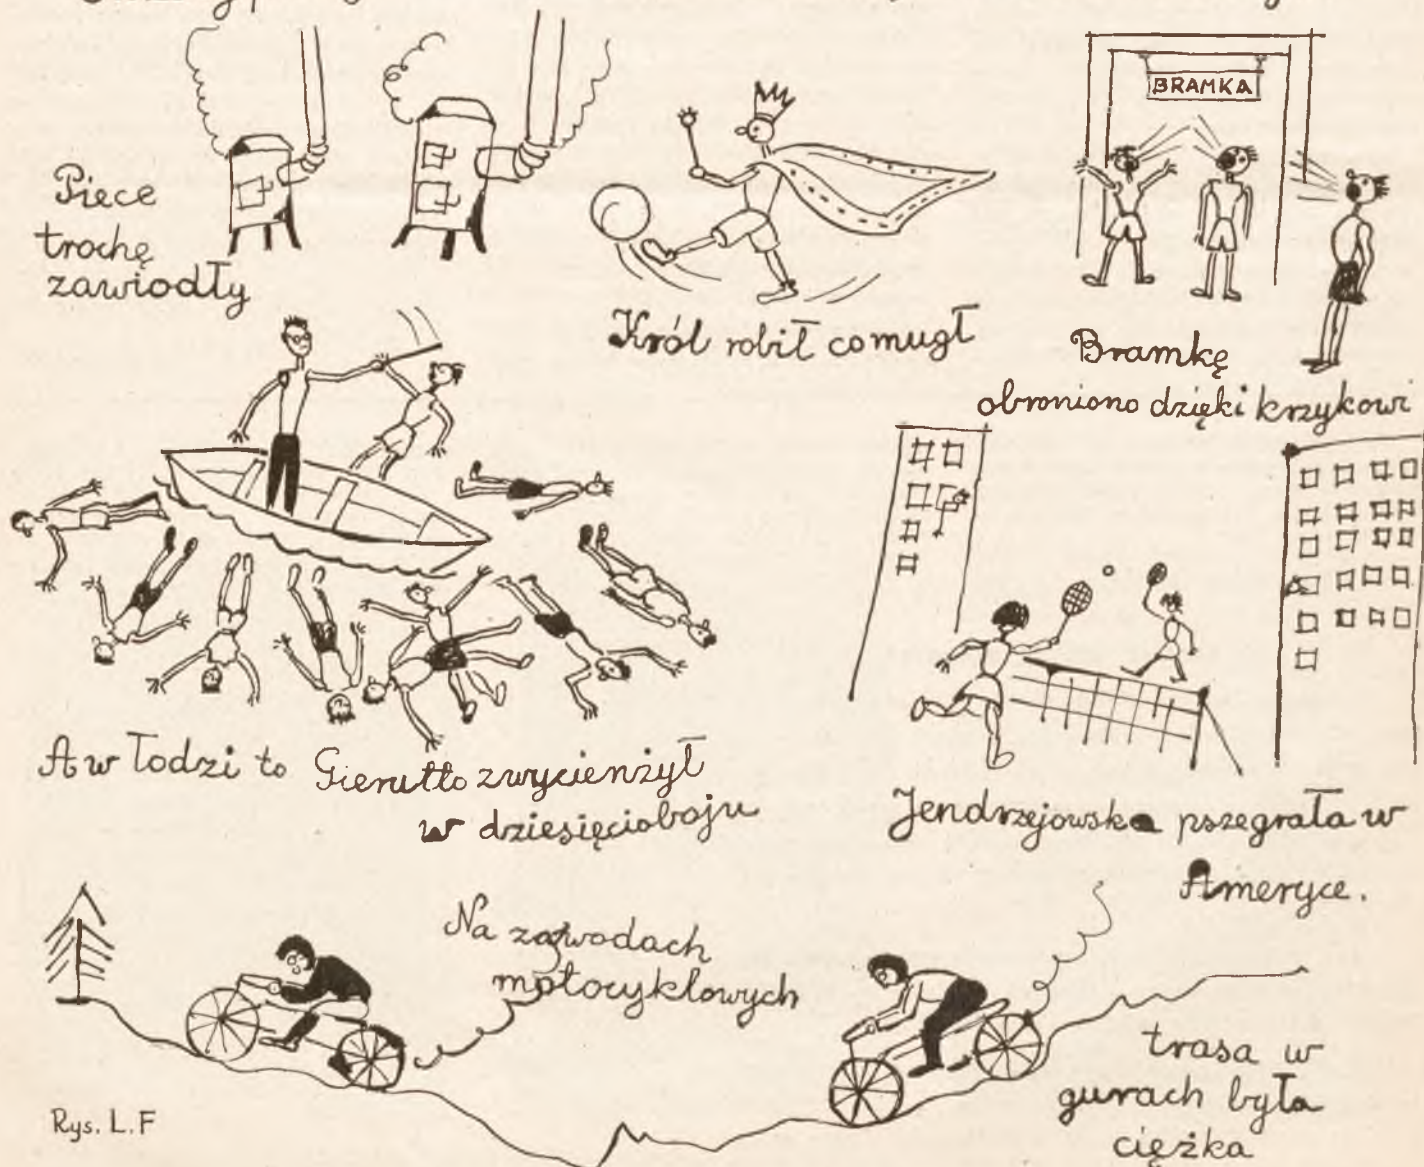 BRAMKA
Piece
trochę
zawiodły
Król robił co mugł
Bramkę
obroniono dzięki krzykowi
A w Łodzi to Gierutto zwycienżył
w dziesięcioboju
Jendrzejowska pszegrała w
Ameryce.
Na zawodach
motocyklowych
trasa w
gurach była
ciężka
Rys. L.F